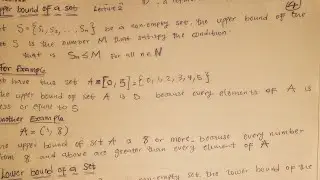 Upper bound of a set Lecture 2
Let S = {S₁, S₂, ..., Sₙ} be a non-empty set, the upper bound of the
set S is the number M that satisfy the condition
that is Sₙ ≤ M for all n ∈ N
For Example
have this set A = [0, 5] = {0, 1, 2, 3, 4, 5}
upper bound of set A is 5. because every elements of A is
less or equal to 5
Another Example
A = (1, 8)
upper bound of set A is 8 or more, because every number
from 8 and above are greater than every element of A
Lower bound of a Set
non-empty set, the lower bound of the